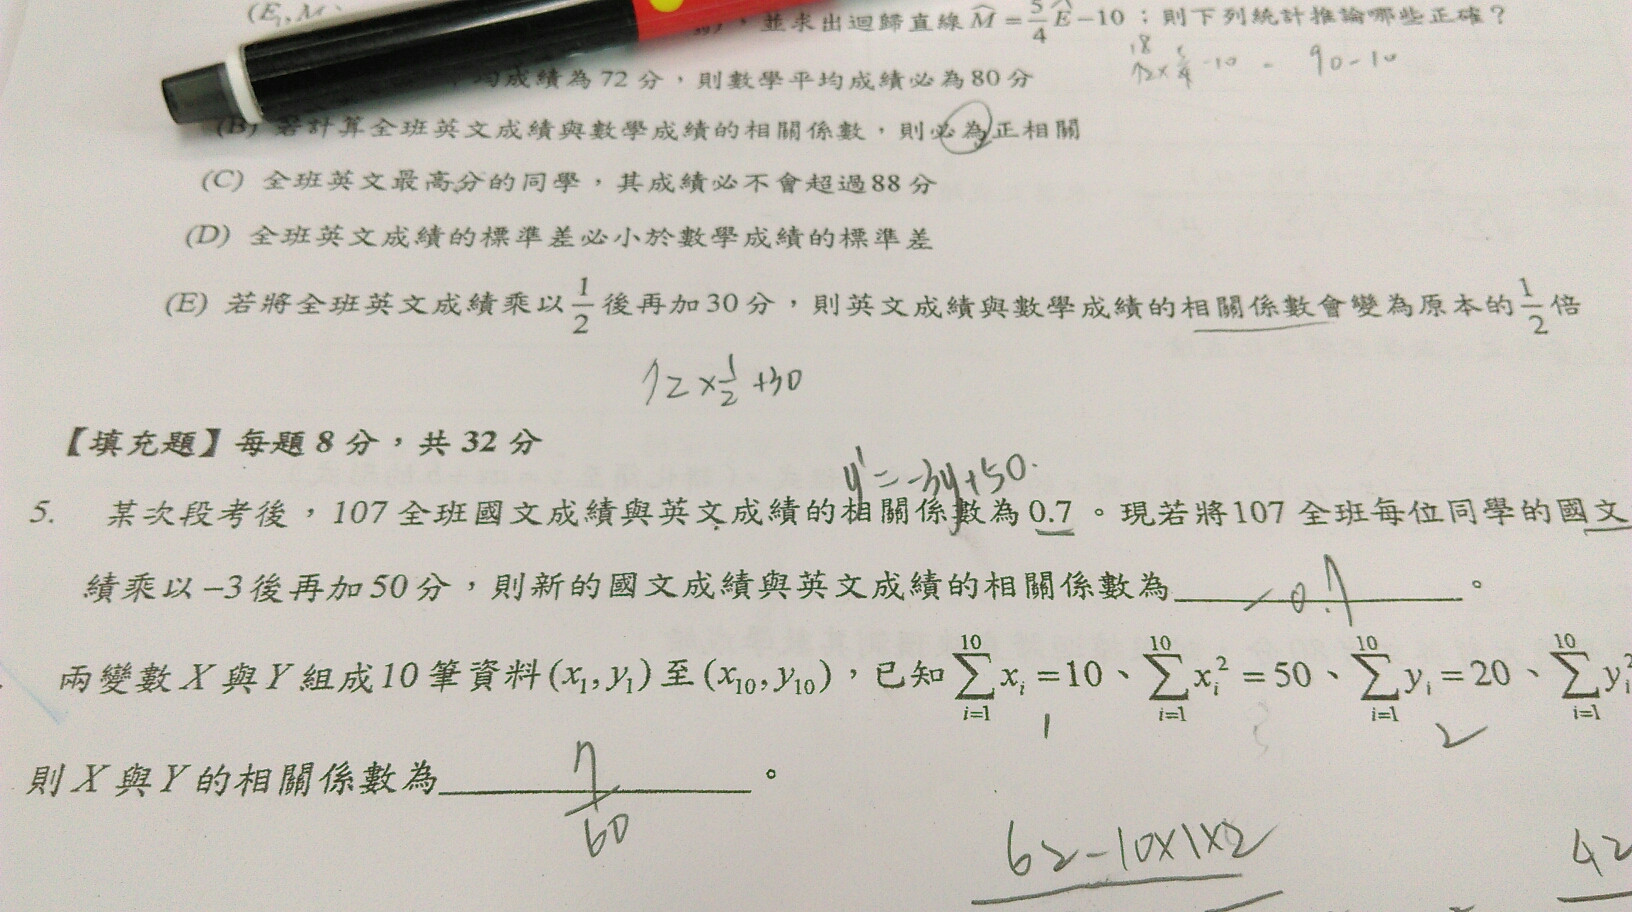 (E₁, M
並求出迴歸直線 M̂ = 5/4 Ê − 10；則下列統計推論哪些正確？
18
72 × 5/4 - 10 = 90-10
均成績為72分，則數學平均成績必為80分
(B) 若計算全班英文成績與數學成績的相關係數，則必為正相關
(C) 全班英文最高分的同學，其成績必不會超過88分
(D) 全班英文成績的標準差必小於數學成績的標準差
(E) 若將全班英文成績乘以 1/2 後再加30分，則英文成績與數學成績的相關係數會變為原本的 1/2 倍
72 × 1/2 + 30
【填充題】每題 8 分，共 32 分
y' = -3y + 50
5. 某次段考後，107 全班國文成績與英文成績的相關係數為 0.7。現若將107 全班每位同學的國文
績乘以 −3 後再加 50 分，則新的國文成績與英文成績的相關係數為 -0.7 。
兩變數 X 與 Y 組成10 筆資料 (x₁, y₁) 至 (x₁₀, y₁₀)，已知 ∑_{i=1}^{10} x_i = 10、∑_{i=1}^{10} x_i² = 50、∑_{i=1}^{10} y_i = 20、∑_{i=1}^{10} y_i²
1 2
則 X 與 Y 的相關係數為 7/60 。
62-10×1×2 42